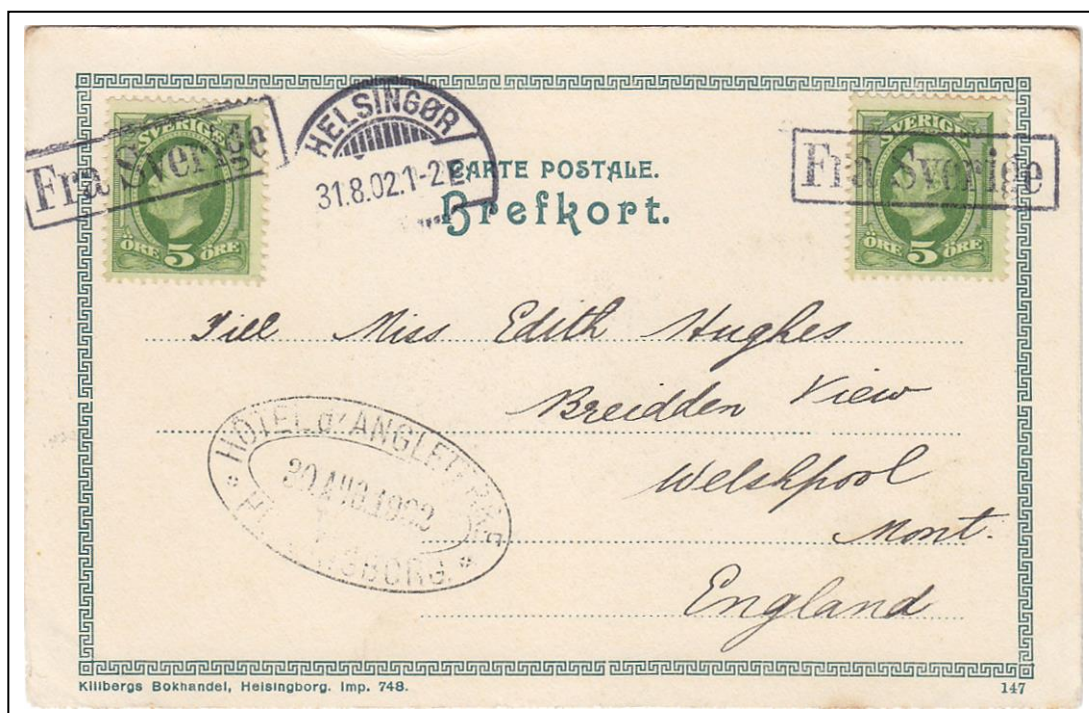 SVERIGE
Fra Sverige
ÖRE 5 ÖRE
HELSINGØR
31.8.02.1-2E
SVERIGE
Fra Sverige
ÖRE 5 ÖRE
CARTE POSTALE.
Brefkort.
Till Miss Edith Hughes
Breidden View
Welshpool
Mont.
England
HÔTEL d'ANGLETERRE
30 AUG 1902
HELSINGBORG
Killbergs Bokhandel, Helsingborg. Imp. 748.
147